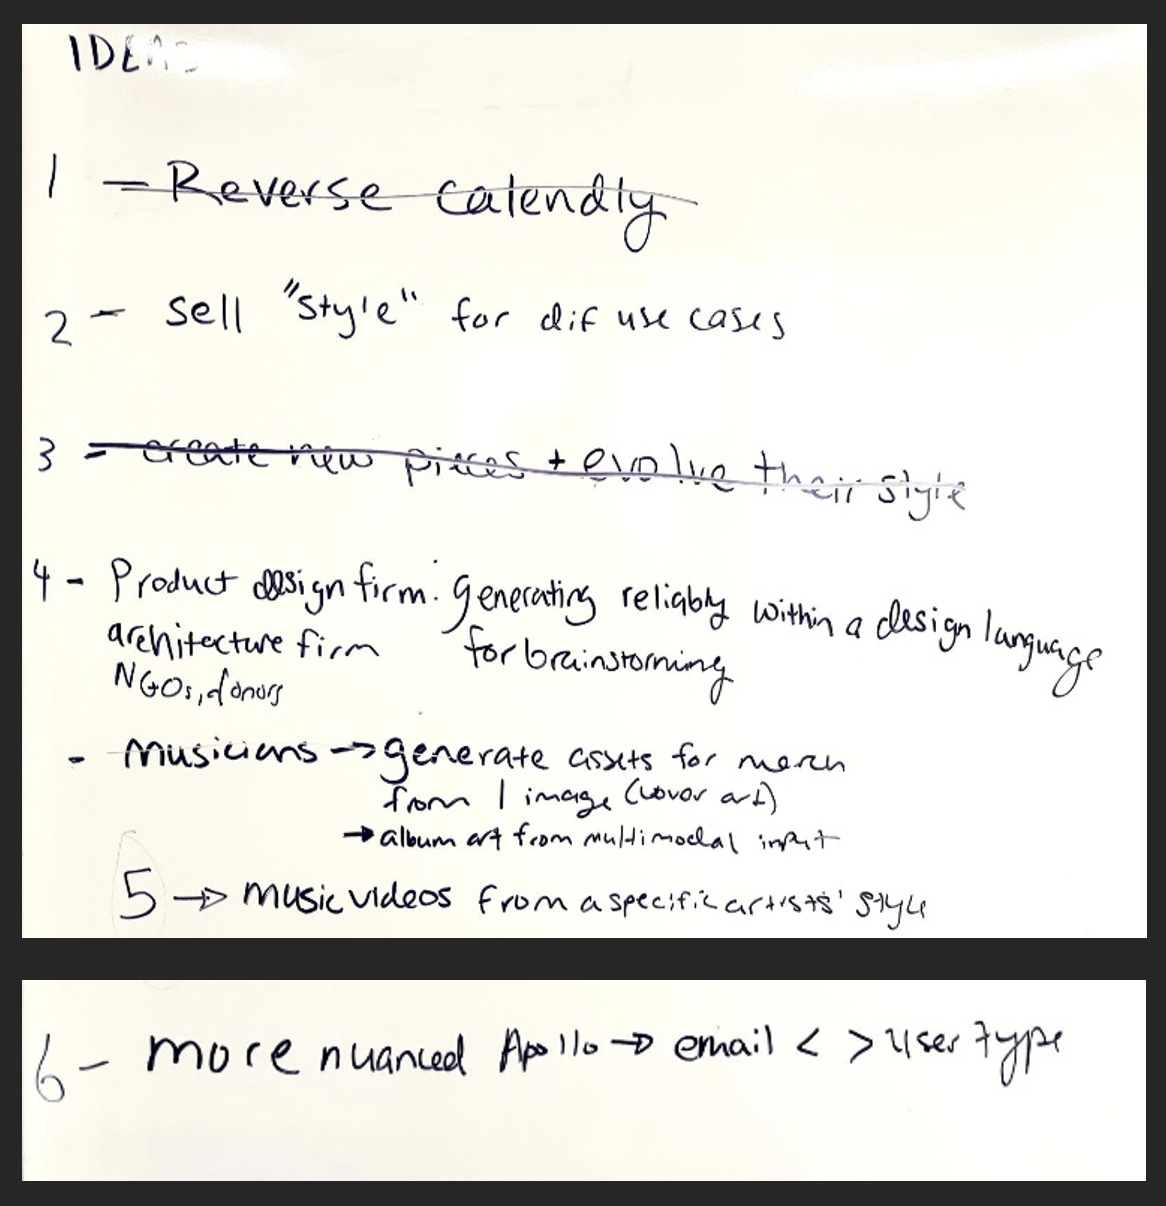 IDEAS
1 - Reverse Calendly
2 - sell "style" for dif use cases
3 - create new pieces + evolve their style
4 - Product design firm: generating reliably within a design language
architecture firm for brainstorming
NGOs, donors
- Musicians → generate assets for merch
from 1 image (cover art)
→ album art from multimodal input
5 → music videos from a specific artists' style
6 - more nuanced Apollo → email < > user type